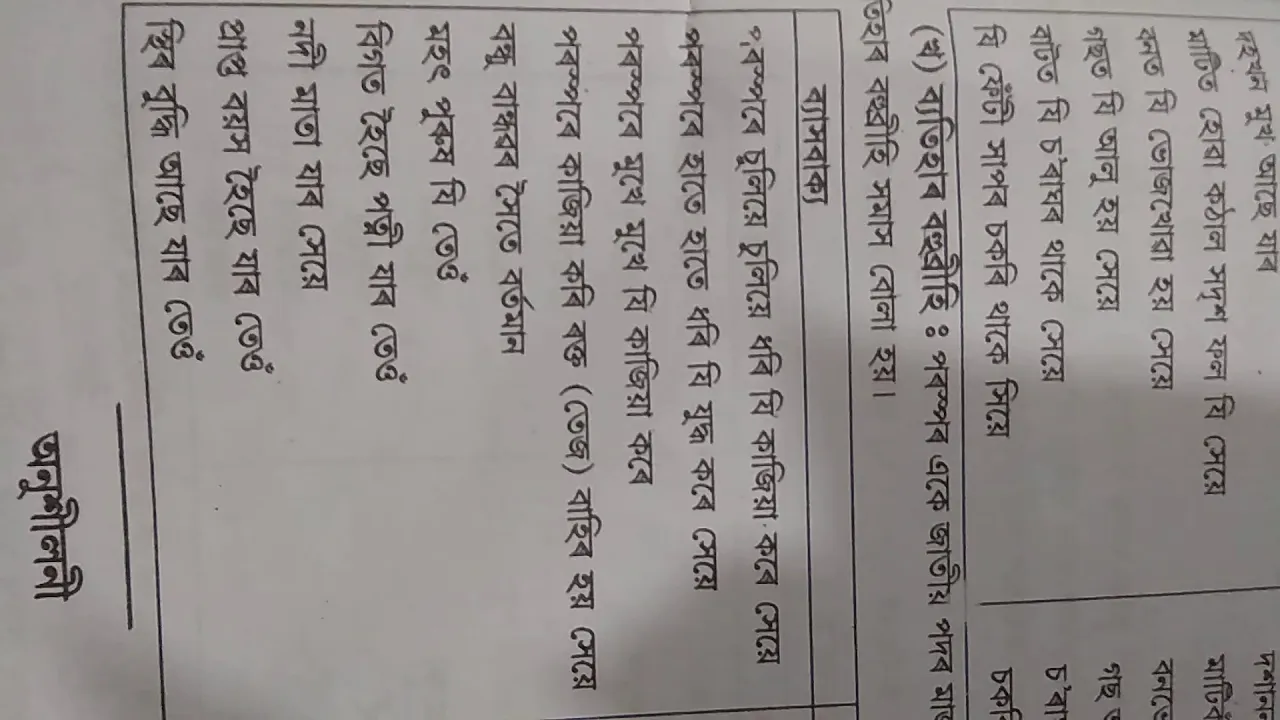 দহখন মুখ আছে যাৰ
মাটিত হোৱা কঠাল সদৃশ ফল যি সেয়ে
বনত যি ভোজখোৱা হয় সেয়ে
গছত যি আলু হয় সেয়ে
বাটত যি চ'ৰাঘৰ থাকে সেয়ে
যি ফেঁটী সাপৰ চকৰি থাকে সিয়ে
দশানন
মাটিক
বনভো
গছ
চ'ৰা
চকৰি
(খ) ব্যতিহাৰ বহুব্ৰীহি : পৰস্পৰ একে জাতীয় পদৰ
তিহাৰ বহুব্ৰীহি সমাস বোলা হয়।
ব্যাসবাক্য
পৰস্পৰে চুলিয়ে চুলিয়ে ধৰি যি কাজিয়া কৰে সেয়ে
পৰস্পৰে হাতে হাতে ধৰি যি যুদ্ধ কৰে সেয়ে
পৰস্পৰে মুখে মুখে যি কাজিয়া কৰে
পৰস্পৰে কাজিয়া কৰি ৰক্ত (তেজ) বাহিৰ হয় সেয়ে
বন্ধু বান্ধৱৰ সৈতে বৰ্তমান
মহৎ পুৰুষ যি তেওঁ
বিগত হৈছে পত্নী যাৰ তেওঁ
নদী মাতা যাৰ সেয়ে
প্ৰাপ্ত বয়স হৈছে যাৰ তেওঁ
স্থিৰ বুদ্ধি আছে যাৰ তেওঁ
অনুশীলনী